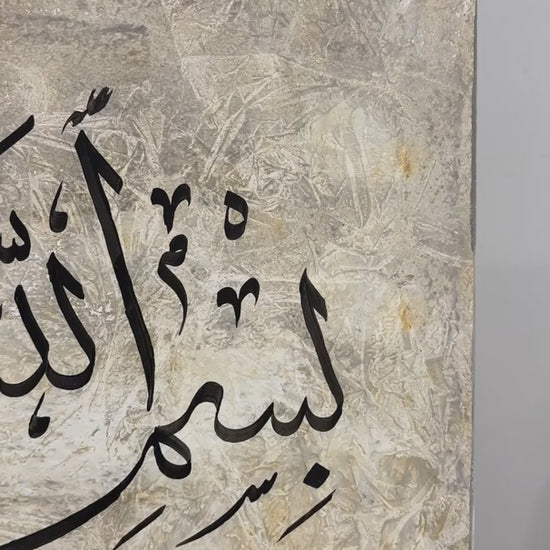 بِسمِ اللّ